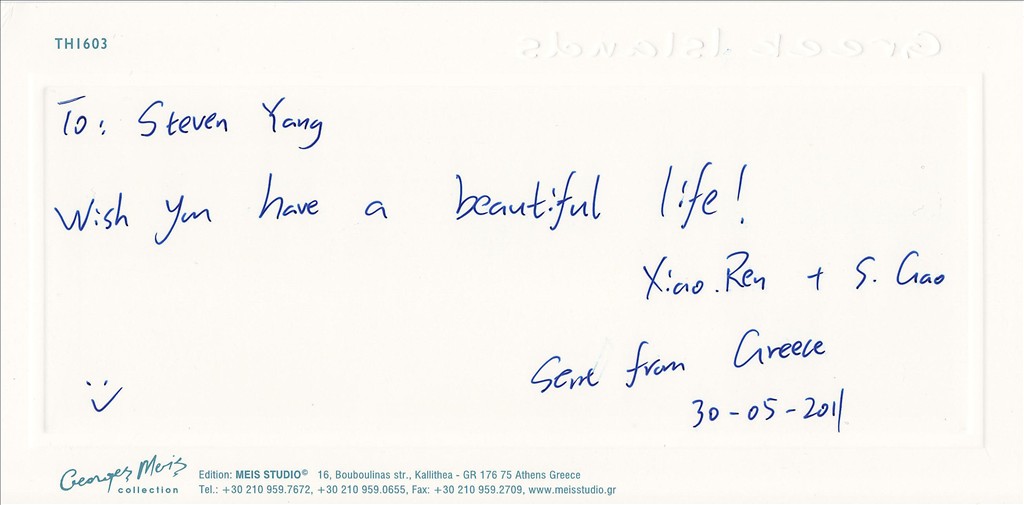 TH1603
Greek Islands
To: Steven Yang
Wish you have a beautiful life!
Xiao.Ren + S. Gao
Sent from Greece
30-05-2011
Georges Meis
collection
Edition: MEIS STUDIO© 16, Bouboulinas str., Kallithea - GR 176 75 Athens Greece
Tel.: +30 210 959.7672, +30 210 959.0655, Fax: +30 210 959.2709, www.meisstudio.gr